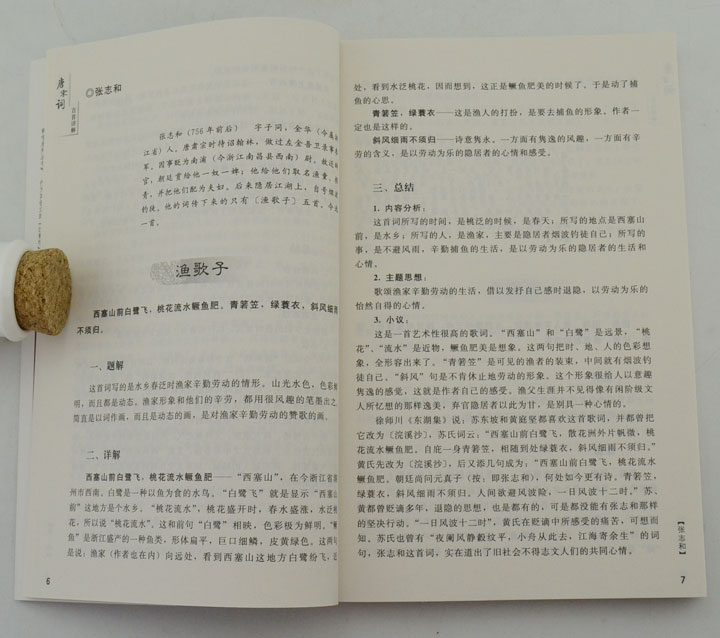 唐宋词
百首详解
◎张志和
张志和（756年前后） 字子同，金华（今
江省）人。唐肃宗时待诏翰林，做过左金吾卫录事
军。因事贬为南浦（今浙江南昌县西南）尉。赦还
官，朝廷赏给他一奴一婢；他给他们取名渔童、
青，并把他们配为夫妇。后来隐居江湖上，自号烟
钓徒。他的词传下来的只有〔渔歌子〕五首。今
一首。
渔歌子
西塞山前白鹭飞，桃花流水鳜鱼肥。青箬笠，绿蓑衣，斜风细雨
不须归。
一、题解
这首词写的是水乡春泛时渔家辛勤劳动的情形。山光水色，色彩
明，而且都是动态。渔家形象和他们的辛劳，都用很风趣的笔墨出之
简直是以词作画，而且是动态的画，是对渔家辛勤劳动的赞歌的画。
二、详解
西塞山前白鹭飞，桃花流水鳜鱼肥——“西塞山”，在今浙江省
州市西南。白鹭是一种以鱼为食的水鸟。“白鹭飞”就是显示“西塞山
前”这地方是个水乡。“桃花流水”，桃花盛开时，春水盛涨，水泛桃
花，所以说“桃花流水”。这和前句“白鹭”相映，色彩极为鲜明。“鳜
鱼”是浙江盛产的一种鱼类，形体扁平，巨口细鳞，皮黄绿色。这两句
是说：渔家（作者也在内）向远处，看到西塞山这地方白鹭纷飞，近
6
处，看到水泛桃花，因而想到，这正是鳜鱼肥美的时候了。于是动了捕
鱼的心思。
青箬笠，绿蓑衣——这是渔人的打扮，是要去捕鱼的形象。作者一
定也是这样的。
斜风细雨不须归——诗意隽永。一方面有隽逸的风趣，一方面有辛
劳的含义，是以劳动为乐的隐居者的心情和感受。
三、总结
1. 内容分析：
这首词所写的时间，是桃泛的时候，是春天；所写的地点是西塞山
前，是水乡；所写的人，是渔家，主要是隐居者烟波钓徒自己；所写的
事，是不避风雨，辛勤捕鱼的生活，是以劳动为乐的隐居者的生活和
心情。
2. 主题思想：
歌颂渔家辛勤劳动的生活，借以发抒自己感时退隐，以劳动为乐的
怡然自得的心情。
3. 小议：
这是一首艺术性很高的歌词。“西塞山”和“白鹭”是远景，“桃
花”、“流水”是近物，鳜鱼肥美是想象。这两句把时、地、人的色彩想
象，全形容出来了。“青箬笠”是可见的渔者的装束，中间就有烟波钓
徒自己。“斜风”句是不肯休止地劳动的形象。这个形象很给人以意趣
隽逸的感觉，这就是作者自己的感受。渔父生涯并不见得像有闲阶级文
人所忆想的那样逸美，弃官隐居者以此为甘，是别具一种心情的。
徐师川《东湖集》说：苏东坡和黄庭坚都喜欢这首歌词，并都曾把
它改为〔浣溪沙〕，苏氏词云：“西塞山前白鹭飞，散花洲外片帆微，桃
花流水鳜鱼肥。自庇一身青箬笠，相随到处绿蓑衣，斜风细雨不须归。”
黄氏先改为〔浣溪沙〕，后又添几句成为：“西塞山前白鹭飞，桃花流水
鳜鱼肥。朝廷尚问元真子（按：即张志和），何处如今更有诗。青箬笠，
绿蓑衣，斜风细雨不须归。人间欲避风波险，一日风波十二时。”苏、
黄都曾贬谪多年，退隐的思想，也是都有的，可是都没能有张志和那样
的坚决行动。“一日风波十二时”，黄氏在贬谪中所感受的痛苦，可想而
知。苏氏也曾有“夜阑风静縠纹平，小舟从此去，江海寄余生”的词
句，张志和这首词，实在道出了旧社会不得志文人们的共同心情。
【张志和】
7